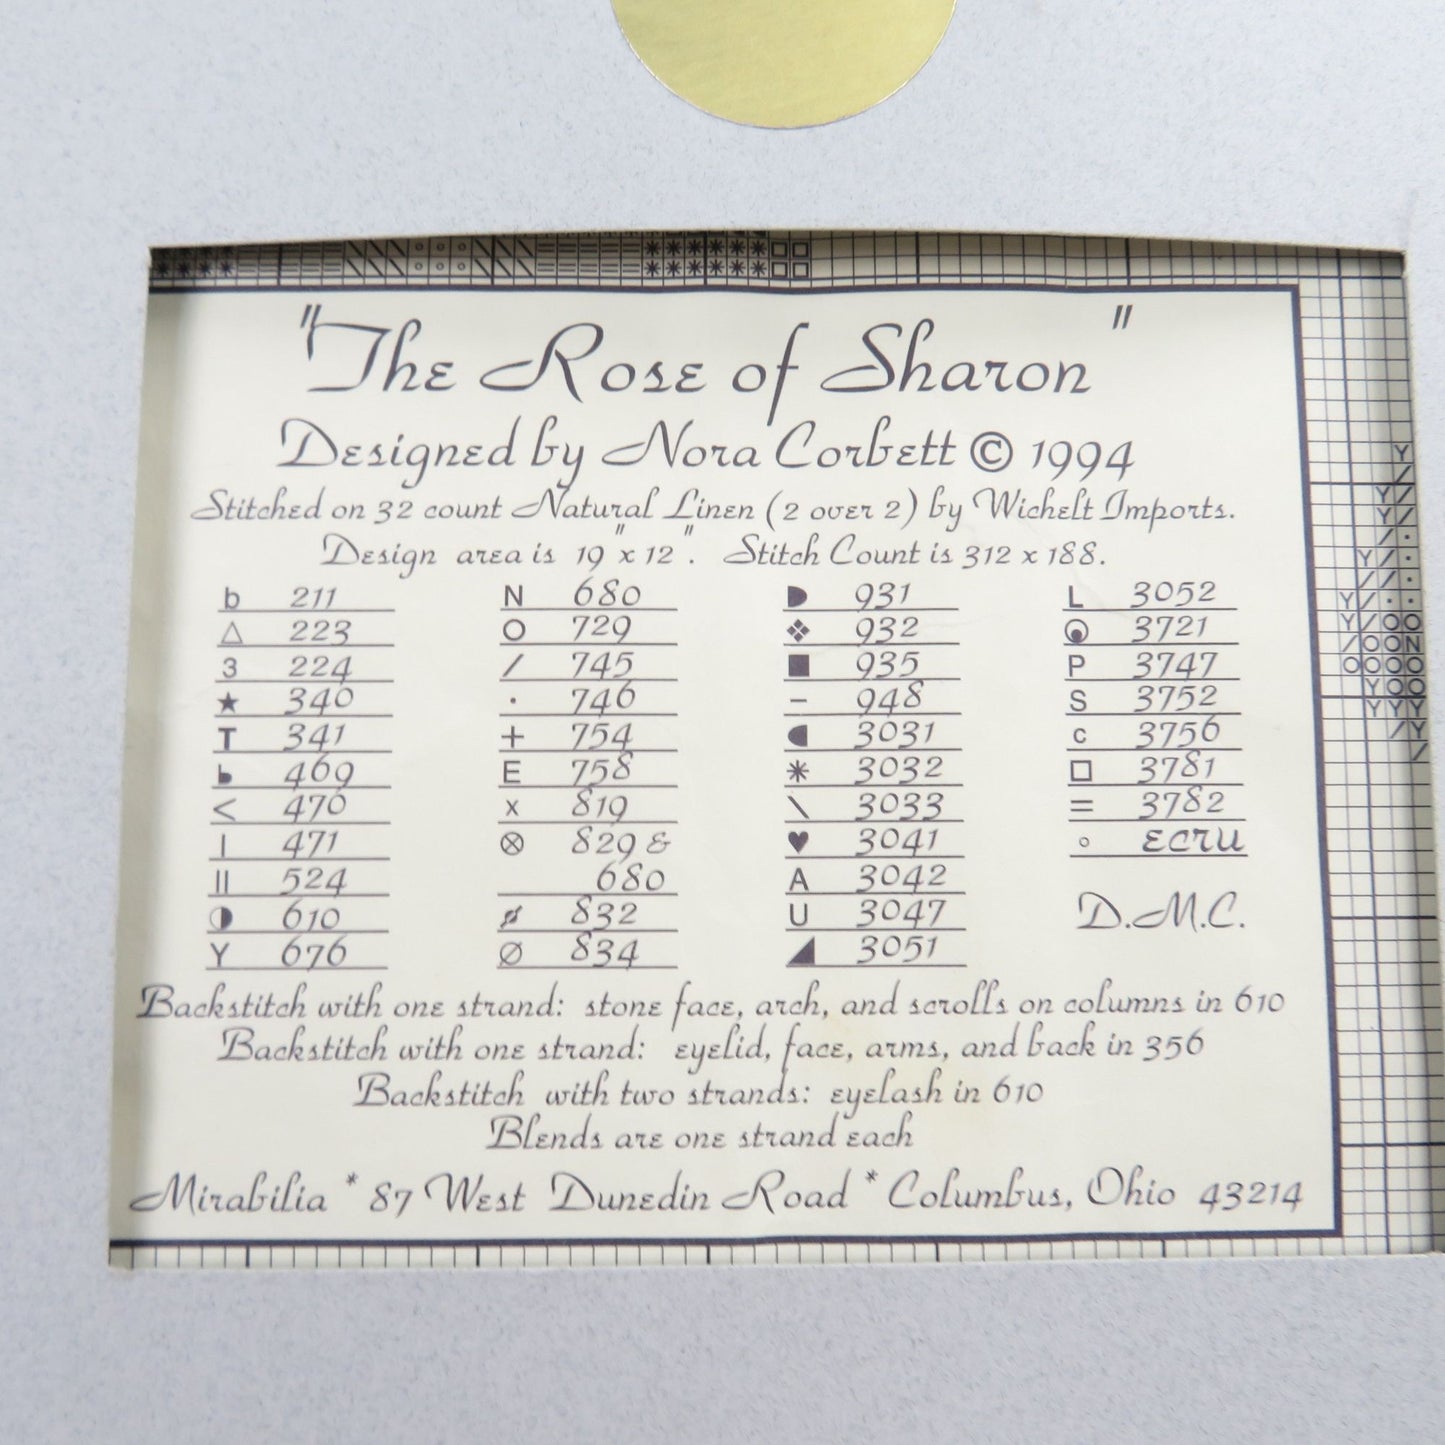 "The Rose of Sharon"
Designed by Nora Corbett © 1994
Stitched on 32 count Natural Linen (2 over 2) by Wichelt Imports.
Design area is 19" x 12". Stitch Count is 312 x 188.
b 211
△ 223
3 224
★ 340
T 341
469
< 470
| 471
|| 524
◑ 610
Y 676
N 680
O 729
/ 745
· 746
+ 754
E 758
x 819
⊗ 829 &
680
832
∅ 834
◗ 931
❖ 932
■ 935
– 948
◖ 3031
* 3032
\ 3033
♥ 3041
A 3042
U 3047
◢ 3051
L 3052
3721
P 3747
S 3752
c 3756
□ 3781
= 3782
° ECRU
D.M.C.
Backstitch with one strand: stone face, arch, and scrolls on columns in 610
Backstitch with one strand: eyelid, face, arms, and back in 356
Backstitch with two strands: eyelash in 610
Blends are one strand each
Mirabilia * 87 West Dunedin Road * Columbus, Ohio 43214